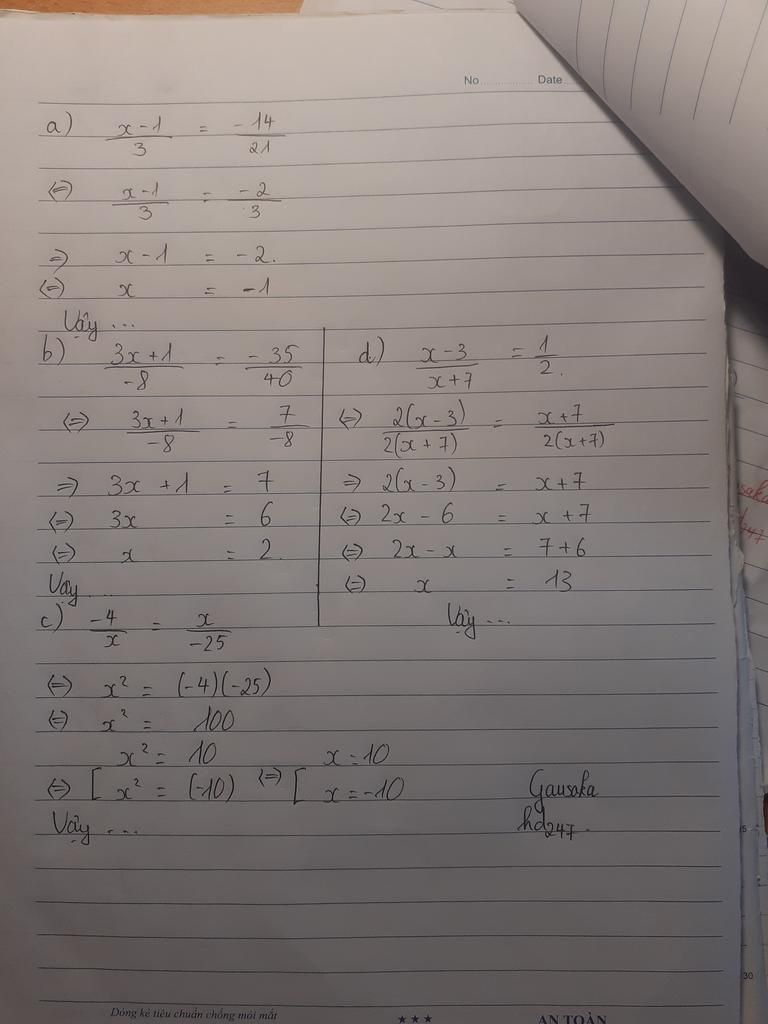 No ............ Date ...
a) \frac{x-1}{3} = \frac{-14}{21}
(=) \frac{x-1}{3} = \frac{-2}{3}
=) x-1 = -2.
(=) x = -1
Vậy ...
b) \frac{3x+1}{-8} = \frac{-35}{40}
(=) \frac{3x+1}{-8} = \frac{7}{-8}
=) 3x+1 = 7
(=) 3x = 6
(=) x = 2.
Vậy ...
d) \frac{x-3}{x+7} = \frac{1}{2}.
(=) \frac{2(x-3)}{2(x+7)} = \frac{x+7}{2(x+7)}
=) 2(x-3) = x+7
(=) 2x-6 = x+7
(=) 2x-x = 7+6
(=) x = 13
Vậy ...
c) \frac{-4}{x} = \frac{x}{-25}
(=) x² = (-4)(-25)
(=) x² = 100
x² = 10 x = 10
(=) [ x² = (-10) (=) [ x = -10
Vậy ...
Gausaka
hd247.
Dòng kẻ tiêu chuẩn chống mỏi mắt
★★★ AN TOÀN